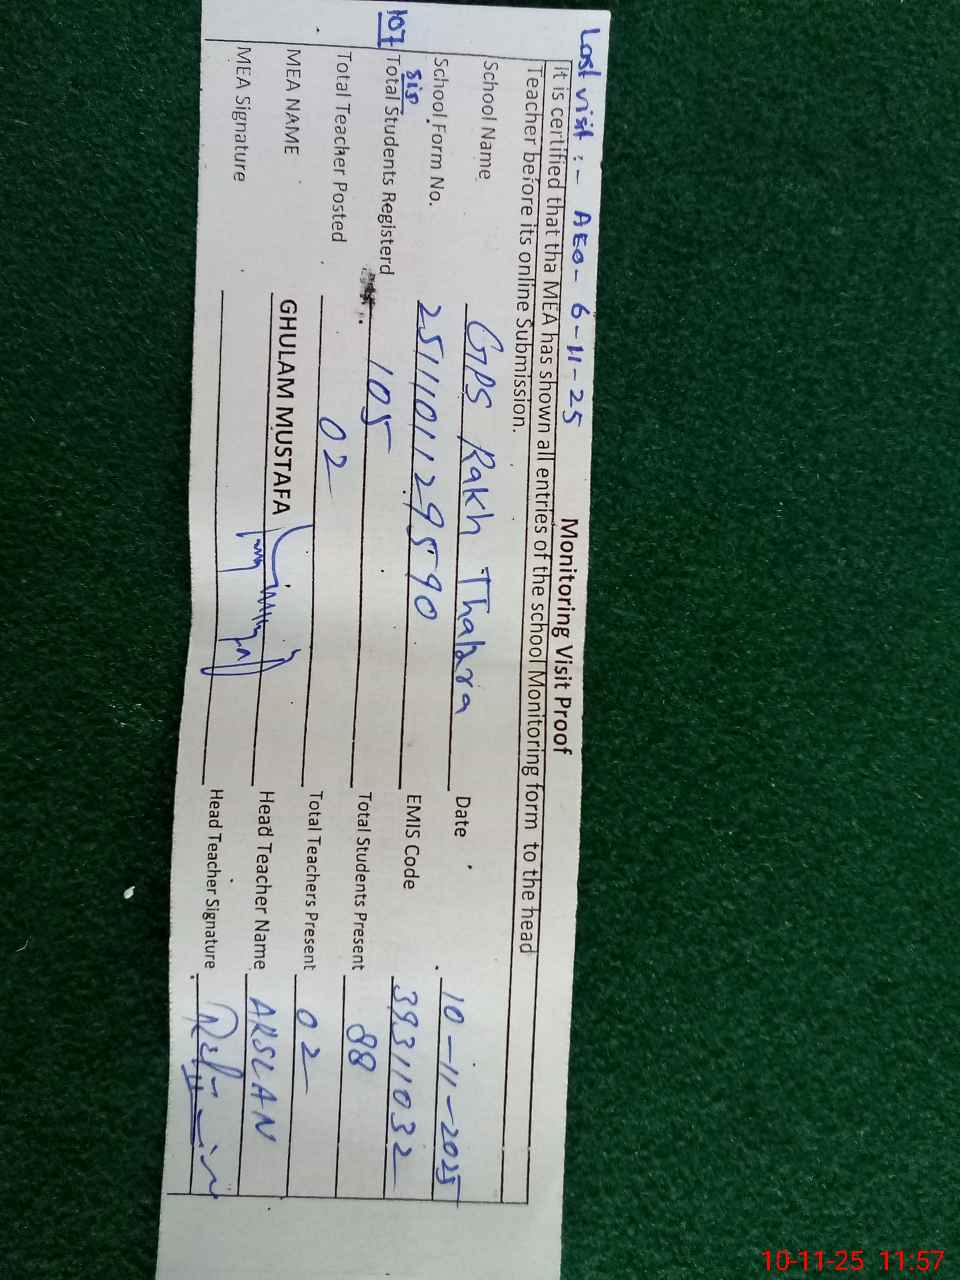 Last visit :- AEO- 6-11-25
Monitoring Visit Proof
It is certified that tha MEA has shown all entries of the school Monitoring form to the head
Teacher before its online Submission.
School Name GPS Rakh Thabra Date 10-11-2025
School Form No. 251110112959​0 EMIS Code 39311032
sis
107 Total Students Registerd 105 Total Students Present 88
Total Teacher Posted 02 Total Teachers Present 02
MEA NAME GHULAM MUSTAFA Head Teacher Name ARSLAN
MEA Signature Head Teacher Signature
10-11-25 11:57